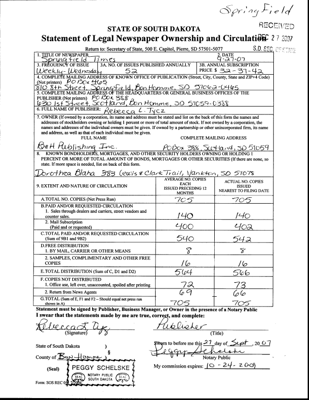 Springfield
RECEIVED
STATE OF SOUTH DAKOTA
Statement of Legal Newspaper Ownership and Circulation
Return to: Secretary of State, 500 E. Capitol, Pierre, SD 57501-5077
S.D. SEC. OF STATE
1. TITLE OF NEWSPAPER
Springfield Times
2. DATE
9-27-07
3. FREQUENCY OF ISSUE
Weekly-Wednesday
3A. NO. OF ISSUES PUBLISHED ANNUALLY
52
3B. ANNUAL SUBSCRIPTION
PRICE $
4. COMPLETE MAILING ADDRESS OF KNOWN OFFICE OF PUBLICATION (Street, City, County, State and ZIP+4 Code)
(Not printers) PO Box 465
810 8th Street, Springfield, Bon Homme, SD
5. COMPLETE MAILING ADDRESS OF THE HEADQUARTERS OR GENERAL BUSINESS OFFICE OF THE
PUBLISHER (Not printers) PO Box 388
Street, Scotland, Bon Homme, SD 57059-0388
6. FULL NAME OF PUBLISHER: Rebecca L. Tycz
7. OWNER (If owned by a corporation, its name and address must be stated and list on the back of this form the names and
addresses of stockholders owning or holding 1 percent or more of total amount of stock. If not owned by a corporation, the
names and addresses of the individual owners must be given. If owned by a partnership or other unincorporated firm, its name
and address, as well as that of each individual must be given.
FULL NAME
COMPLETE MAILING ADDRESS
B&H Publishing Inc.
PO Box 388, Scotland, SD 57059
8. KNOWN BONDHOLDERS, MORTGAGEES, AND OTHER SECURITY HOLDERS OWNING OR HOLDING 1
PERCENT OR MORE OF TOTAL AMOUNT OF BONDS, MORTGAGES OR OTHER SECURITIES (If there are none, so
state. If more space is needed, list on back of this form.
Dorothea Blaha 989 Lewis & Clark Trail, Yankton, SD 57078
9. EXTENT AND NATURE OF CIRCULATION
AVERAGE NO. COPIES
EACH
ISSUED PRECEDING 12
MONTHS
ACTUAL NO. COPIES
ISSUED
NEAREST TO FILING DATE
A. TOTAL NO. COPIES (Net Press Run)
705
705
B. PAID AND/OR REQUESTED CIRCULATION
1. Sales through dealers and carriers, street vendors and
counter sales.
140
140
2. Mail Subscription
(Paid and or requested)
400
402
C. TOTAL PAID AND/OR REQUESTED CIRCULATION
(Sum of 9B1 and 9B2)
540
542
D. FREE DISTRIBUTION
1. BY MAIL, CARRIER OR OTHER MEANS
8
8
2. SAMPLES, COMPLIMENTARY AND OTHER FREE
COPIES
16
16
E. TOTAL DISTRIBUTION (Sum of C, D1 and D2)
564
566
F. COPIES NOT DISTRIBUTED
1. Office use, left over, unaccounted, spoiled after printing
72
73
2. Return from News Agents
69
66
G. TOTAL (Sum of E, F1 and F2 – Should equal net press run
shown in A)
705
705
Statement must be signed by Publisher, Business Manager, or Owner in the presence of a Notary Public
I swear that the statements made by me are true, correct, and complete:
Rebecca L. Tycz
(Signature)
Publisher
(Title)
State of South Dakota )
) §
County of Bon Homme )
Sworn to before me this 27 day of Sept, 2007
Peggy Schelske
Notary Public
(Seal)
PEGGY SCHELSKE
NOTARY PUBLIC
SOUTH DAKOTA
SEAL
My commission expires: 10-24-2008